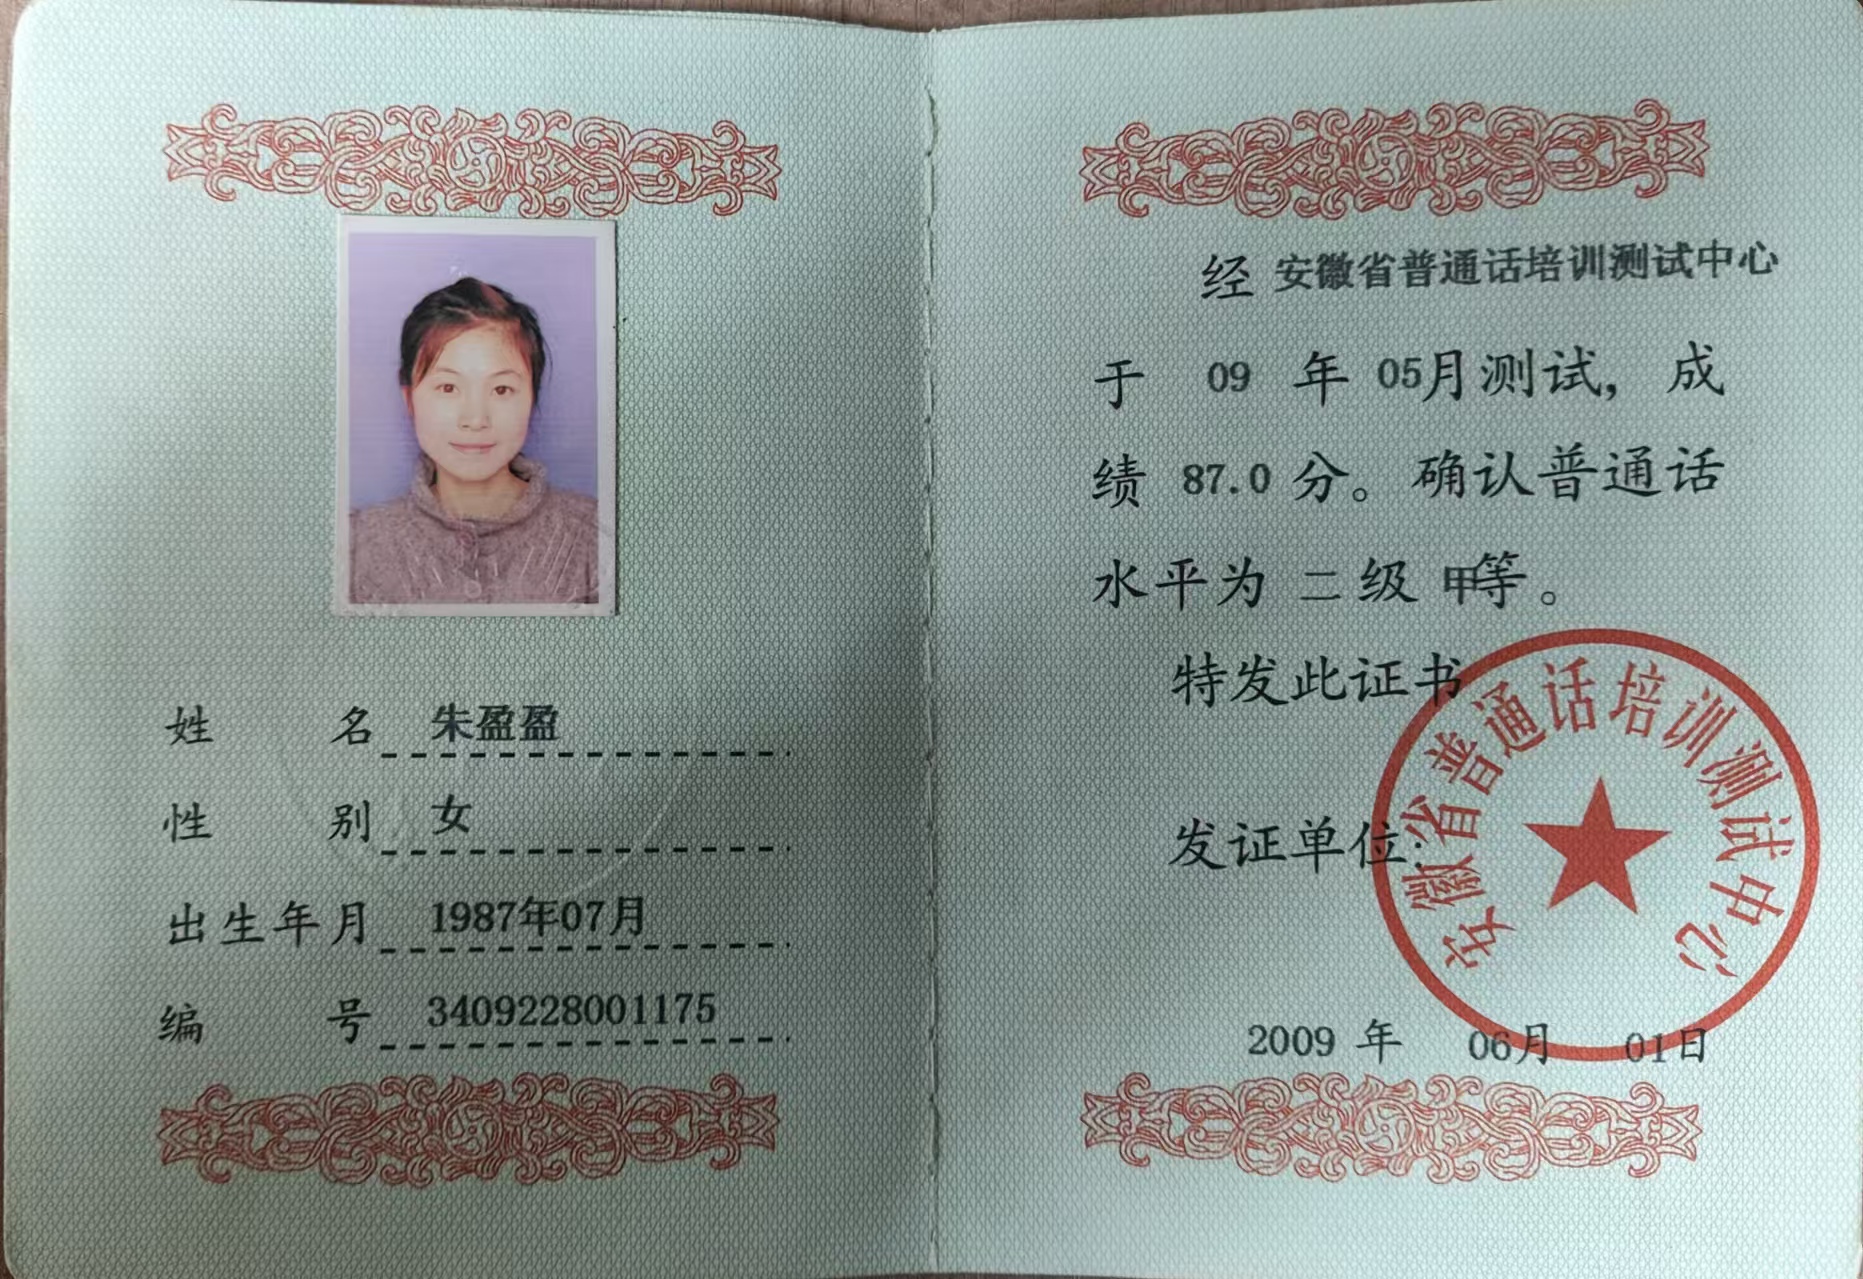 姓名 朱盈盈
性别 女
出生年月 1987年07月
编号 3409228001175
经 安徽省普通话培训测试中心
于 09 年 05月测试，成
绩 87.0 分。确认普通话
水平为 二级 甲等。
特发此证书
发证单位：
安徽省普通话培训测试中心
2009 年 06月 01日